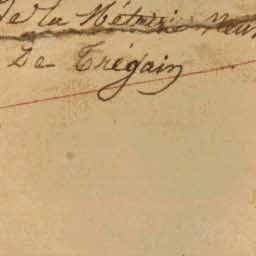 de la Métairie Neuv
De Trégain